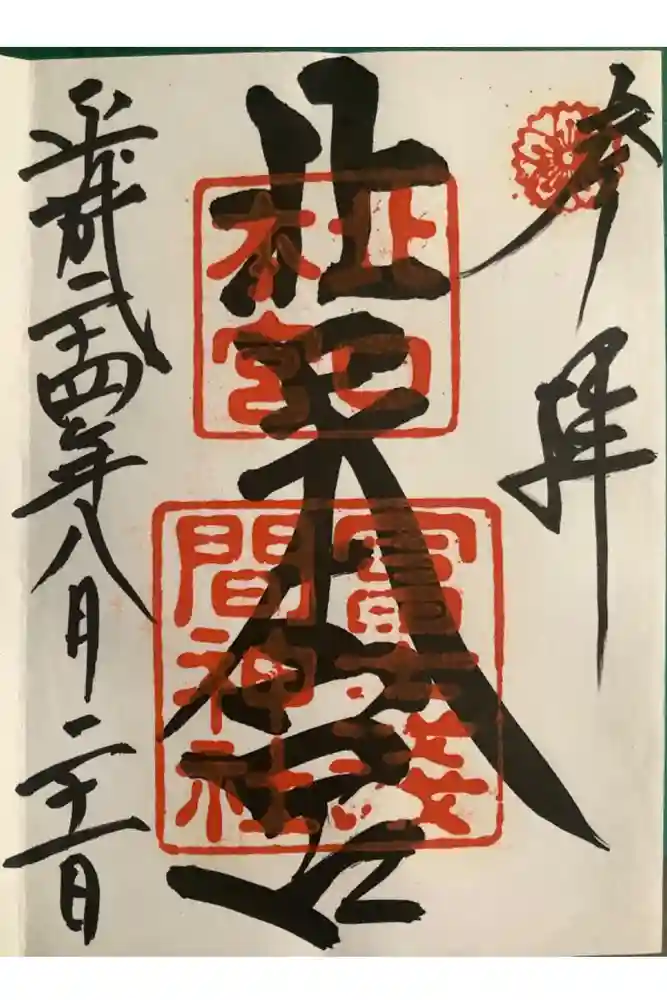 参拝
北口本宮
北口
本宮
冨士淺
間神社
平成二十四年八月二十一日